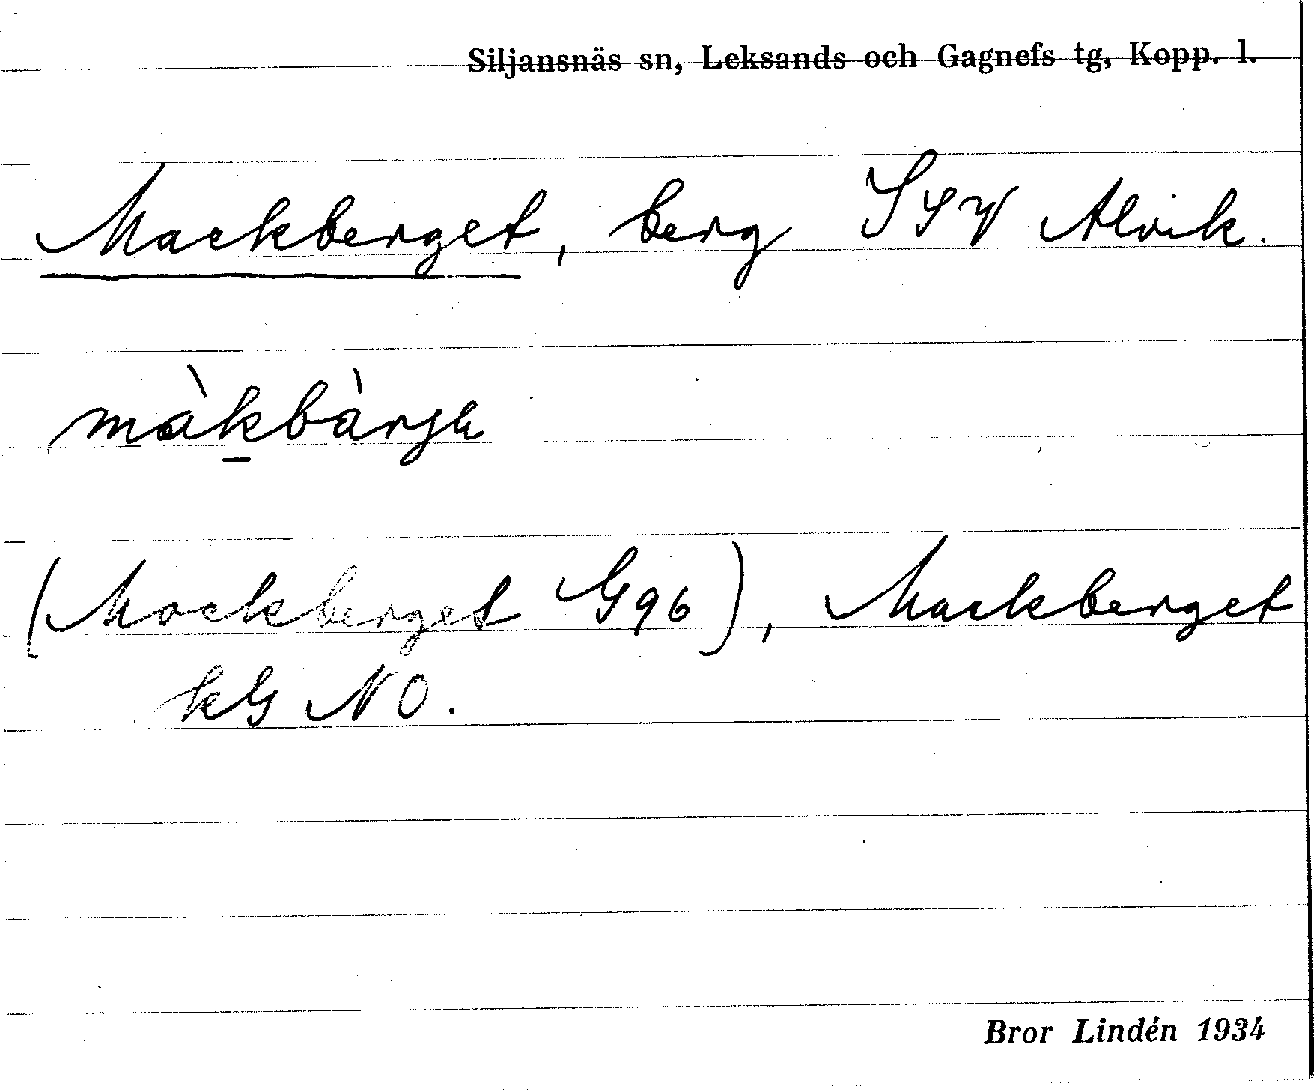 Siljansnäs sn, Leksands och Gagnefs tg, Kopp. l.
Mackberget, berg SSV Alvik.
màkbàrjə
(Mockberget G96), Mackberget
kG NO.
Bror Lindén 1934